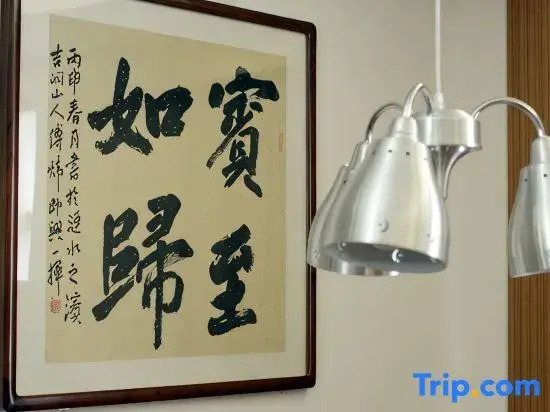 賓至
如歸
丙申春月書於
水之濱
吉
山人傅
即興一揮
Trip.com